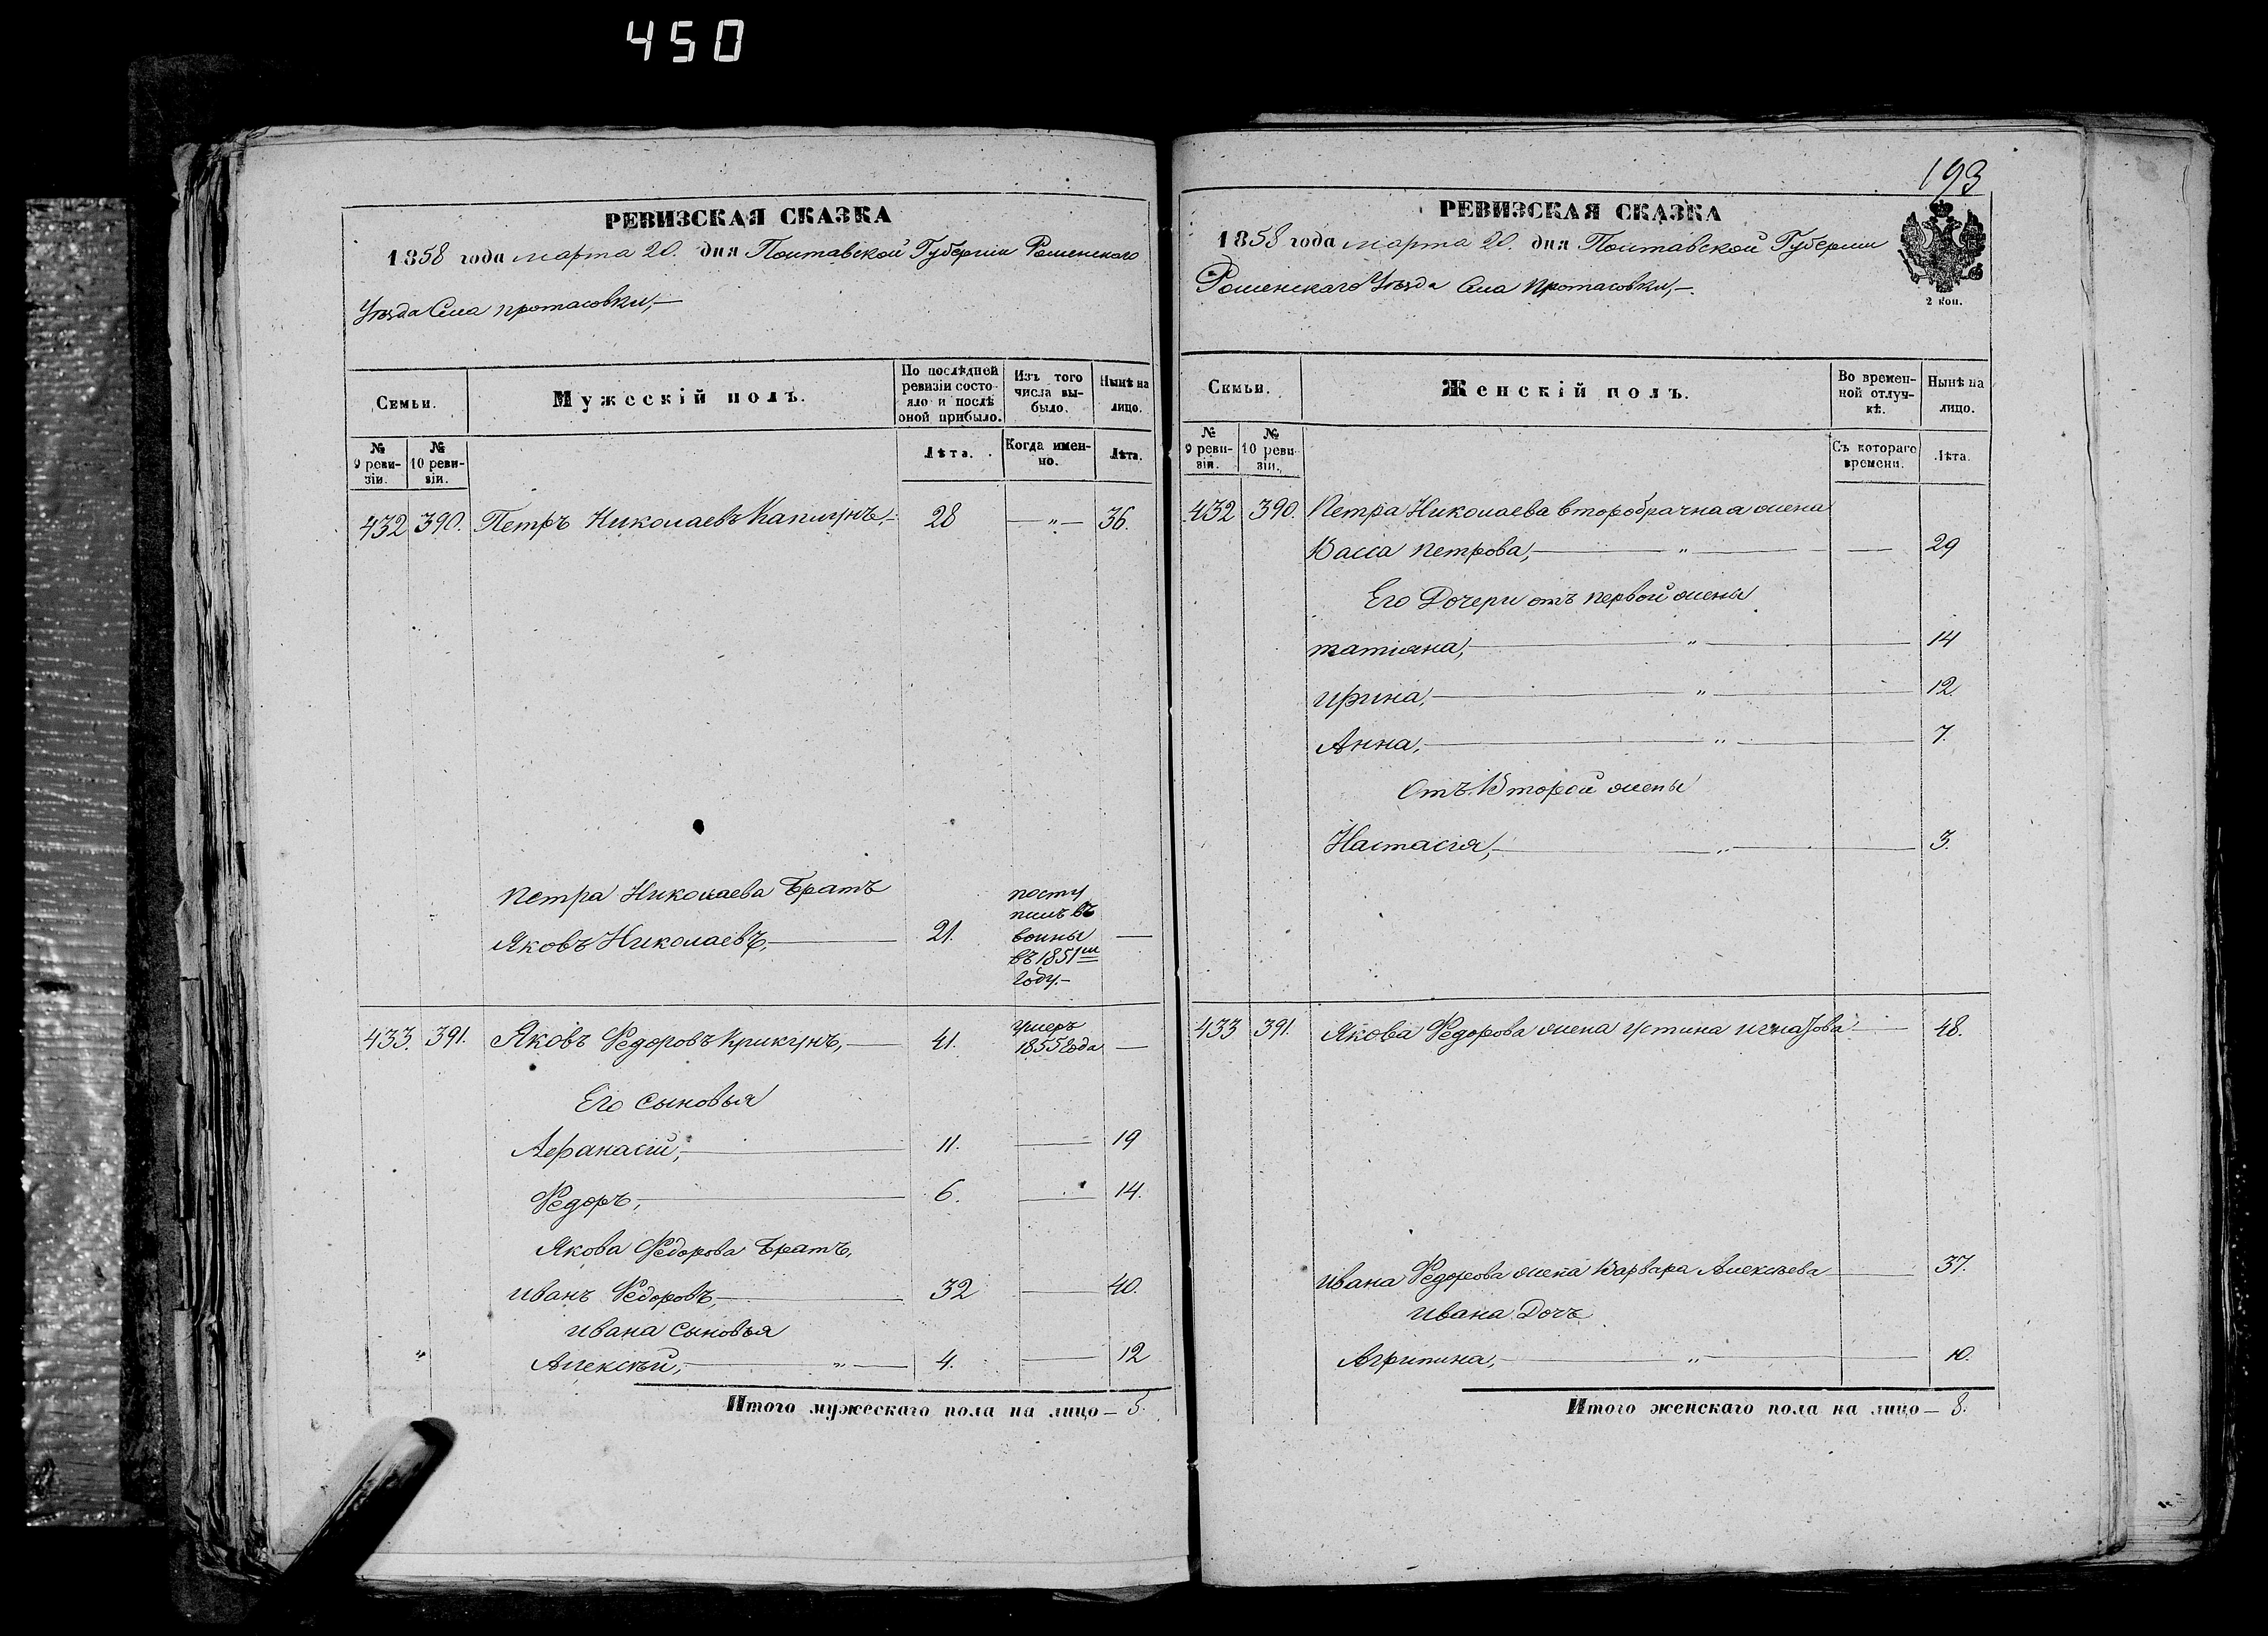 450
РЕВИЗСКАЯ СКАЗКА
1858 года марта 20. дня Полтавской Губернии Роменского
Уѣзда Села протасовки,—
Семьи.
Мужескій полъ.
По послѣдней ревизіи состояло и послѣ оной прибыло.
Изъ того числа выбыло.
Нынѣ на лицо.
№ 9 ревизіи.
№ 10 ревизіи.
Лѣта.
Когда именно.
Лѣта.
432 390. Петръ Николаевъ Капигунъ,— 28 — „ — 36.
Петра Николаева Братъ
Яковъ Николаевъ,— 21. посту
пилъ въ
воины —
въ 1851м
году.—
433. 391. Яковъ Федоровъ Крикунъ,— 41. умеръ
1855 года —
Его сыновья
Афанасій,— 11. — 19
Федоръ,— 6. — 14.
Якова Федорова Братъ,
иванъ Федоровъ,— 32 — 40.
ивана сыновья
„ Алексѣй,— „ — 4. — 12
Итого мужескаго пола на лицо — 5.
193
РЕВИЗСКАЯ СКАЗКА
1858 года марта 20. дня Полтавской Губернии
Роменскаго Уѣзда Села протасовки,—.
2 коп.
Семьи.
Женскій полъ.
Во временной отлучкѣ.
Нынѣ на лицо.
№ 9 ревизіи.
№ 10 ревизіи.
Съ котораго времени.
Лѣта.
432 390. Петра Николаева второбрачная жена
Васса петрова,— „ — — 29
Его Дочери отъ первой жены
татіяна,— „ — 14
ирина,— „ — 12.
Анна,— „ — 7.
Отъ Второй жены
Настасія,— „ — 3.
433 391. Якова Федорова жена устина игнатова — 48.
ивана Федорова жена Варвара Алексѣева — 37.
ивана Дочь
Агрипина,— „ — 10.
Итого женскаго пола на лицо — 8.